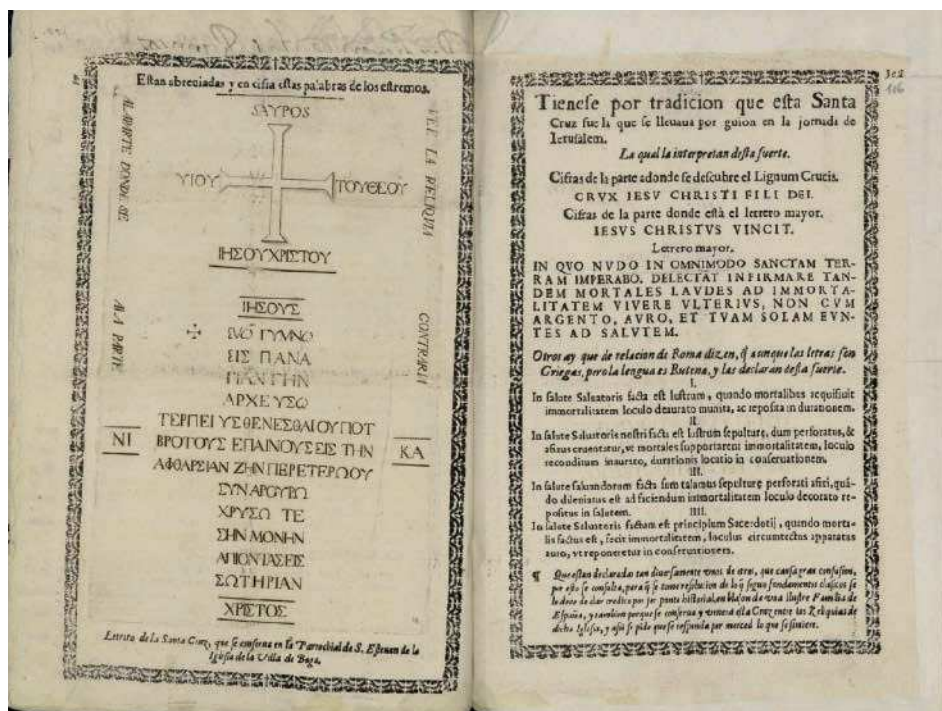 Estan abreviadas y en cifra estas palabras de los estremos.
ALAPARTE DONDE SE
VEE LA RELIQUIA
SAYPOS
ΥΙΟΥ ΤΟΥΘΕΟΥ
ΙΗΣΟΥΧΡΙΣΤΟΥ
ΙΗΣΟΥΣ
ALA PARTE
CONTRARIA
ΓΥΜΝΟ
ΕΙΣ ΠΑΝΑ
ΓΙΑΝ ΓΗΝ
ΑΡΧΕΥΣΩ
ΤΕΡΠΕΙ ΥΣΘΕΝΕΣΘΑΙ ΟΥΠΟΤ
ΝΙ ΒΡΟΤΟΥΣ ΕΠΑΙΝΟΥΣ ΕΙΣ ΤΗΝ ΚΑ
ΑΦΘΑΡΣΙΑΝ ΖΗΝ ΠΕΡΕΤΕΡΩΟΥ
ΣΥΝ ΑΡΟΥΡΩ
ΧΡΥΣΩ ΤΕ
ΣΗΝ ΜΟΝΗΝ
ΑΠΙΟΝΤΑΣΕΙΣ
ΣΩΤΗΡΙΑΝ
ΧΡΙΣΤΟΣ
Letrero de la Santa Cruz, que se conserva en la Parrochial de S. Estevan de la
Iglesia de la Villa de Baga.
Tienese por tradicion que esta Santa
Cruz fue la que se lleuaua por guion en la jornada de
Ierusalem.
La qual la interpretan desta suerte.
Cifras de la parte adonde se descubre el Lignum Crucis.
CRVX IESV CHRISTI FILI DEI.
Cifras de la parte donde està el letrero mayor.
IESVS CHRISTVS VINCIT.
Letrero mayor.
IN QVO NVDO IN OMNIMODO SANCTAM TER-
RAM IMPERABO. DELECTAT INFIRMARE TAN-
DEM MORTALES LAVDES AD IMMORTA-
LITATEM VIVERE VLTERIVS, NON CVM
ARGENTO, AVRO, ET TVAM SOLAM EVN-
TES AD SALVTEM.
Otros ay que de relacion de Roma dizen, q̃ aunque las letras son
Griegas, pero la lengua es Rutena, y las declaran desta suerte.
I.
In salute Saluatoris facta est lustrum, quando mortalibus requisiuit
immortalitatem loculo deaurato munita, ac reposita in durationem.
II.
In salute Saluatoris nostri facta est lustrum sepulturę, dum perforatus, &
afixus cruentatur, vt mortales supportarent immortalitatem, loculo
reconditum inaurato, durationis locatio in conseruationem.
III.
In salute saluandorum facta sum talamus sepulturę perforati afixi, quã-
do dileniatus est ad faciendum immortalitatem loculo decorato re-
positus in salutem.
IIII.
In salute Saluatoris factum est principium Sacerdotij, quando morta-
lis factus est, fecit immortalitatem, loculus circumtectus apparatus
auro, vt reponeretur in conseruationem.
¶ Que estan declaradas tan diuersamente vnos de otros, que causa gran confusion,
por esto se consulta, para q̃ se tome resolucion de lo q̃ segun fundamentos clasicos se
le deue de dar credito por ser punto historial, en blason de vna ilustre Familia de
España, y tambien porque se conserua y venera esta Cruz entre las Reliquias de
dicha Iglesia, y assi se pide que se responda por merced lo que se sintiere.